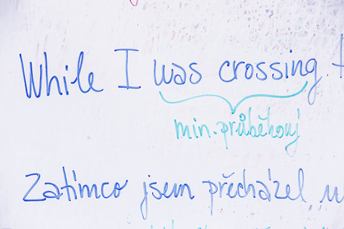 While I was crossing
min. průběhový
Zatímco jsem přecházel,